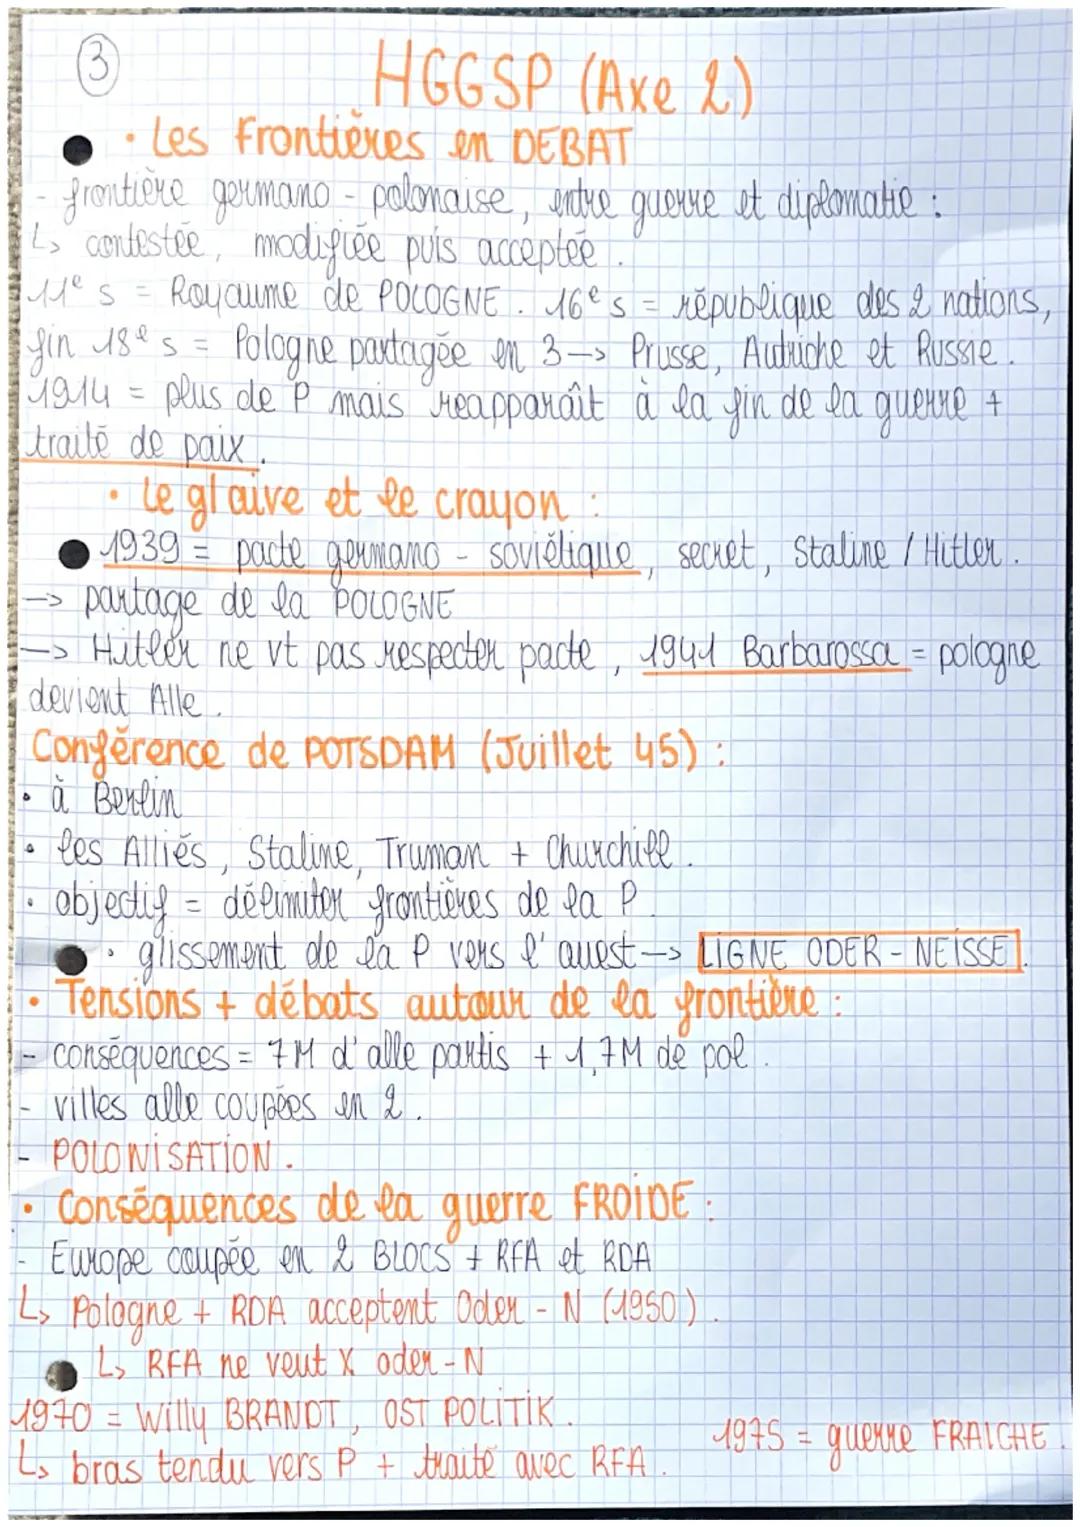 3
HGGSP (Axe 2)
• Les Frontières en DEBAT
- frontière germano - polonaise, entre guerre et diplomatie :
↳ contestée, modifiée puis acceptée.
11e s = Royaume de POLOGNE. 16e s = république des 2 nations,
fin 18e s = Pologne partagée en 3 -> Prusse, Autriche et Russie.
1914 = plus de P mais réapparaît à la fin de la guerre +
traité de paix.
• Le glaive et le crayon :
1939 = pacte germano - soviétique, secret, Staline / Hitler.
-> partage de la POLOGNE
-> Hitler ne vt pas respecter pacte, 1941 Barbarossa = pologne
devient Alle.
Conférence de POTSDAM (Juillet 45) :
• à Berlin
• les Alliés, Staline, Truman + Churchill.
• objectif = délimiter frontières de la P.
• glissement de la P vers l'ouest -> LIGNE ODER - NEISSE.
• Tensions + débats autour de la frontière :
- conséquences = 7M d'alle partis + 1,7M de pol.
- villes alle coupées en 2.
- POLONISATION.
• Conséquences de la guerre FROIDE :
- Europe coupée en 2 BLOCS + RFA et RDA
↳ Pologne + RDA acceptent Oder - N (1950).
↳ RFA ne veut X oder - N
1970 = Willy BRANDT, OST POLITIK.
1975 = guerre FRAICHE.
↳ bras tendu vers P + traité avec RFA.